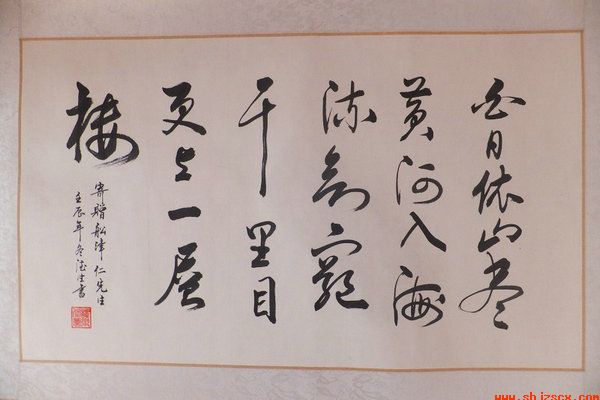 白日依山尽
黄河入海
流欲窮
千里目
更上一層
楼
寄贈船津仁先生
壬辰年冬書
www.shjzscx.com